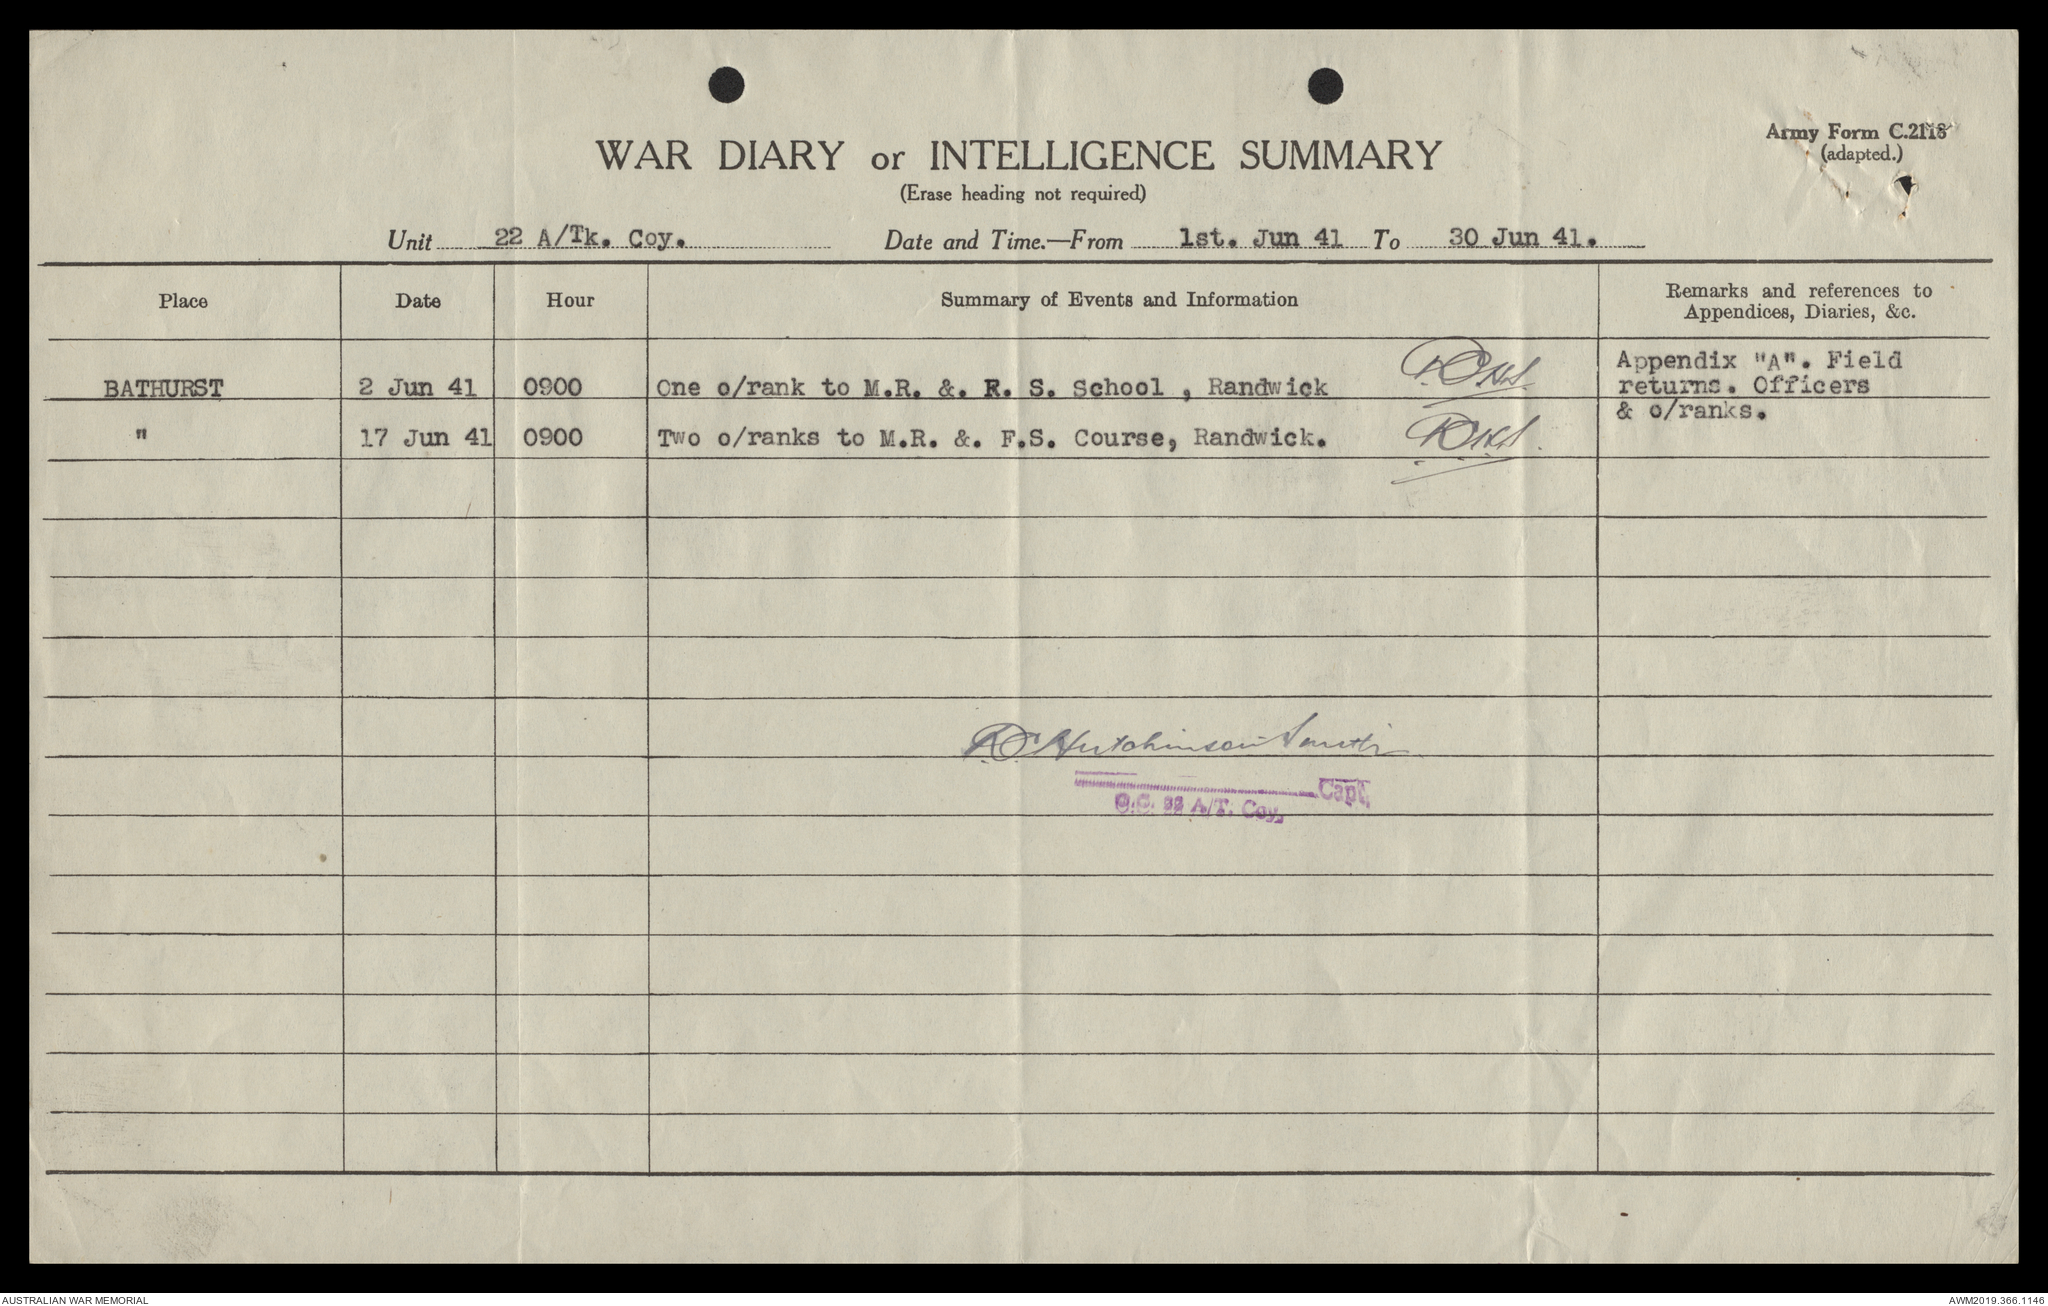 Army Form C.2118
(adapted.)
WAR DIARY or INTELLIGENCE SUMMARY
(Erase heading not required)
Unit 22 A/Tk. Coy. Date and Time.—From 1st. Jun 41 To 30 Jun 41.
Place Date Hour Summary of Events and Information Remarks and references to
Appendices, Diaries, &c.
BATHURST 2 Jun 41 0900 One o/rank to M.R. &. R. S. School , Randwick Appendix "A". Field
returns. Officers
& o/ranks.
" 17 Jun 41 0900 Two o/ranks to M.R. &. F.S. Course, Randwick.
Hutchinson Smith
Capt.
O.C. 22 A/T. Coy.
AUSTRALIAN WAR MEMORIAL AWM2019.366.1146